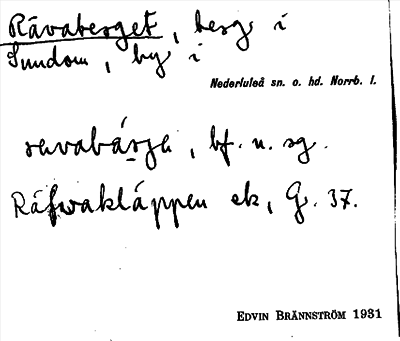 Rävaberget, berg i
Sundom, by i
Nederluleå sn. o. hd. Norrb. l.
ravabárge, bf. n. sg.
Räfwakläppen ek, G. 37.
EDVIN BRÄNNSTRÖM 1931